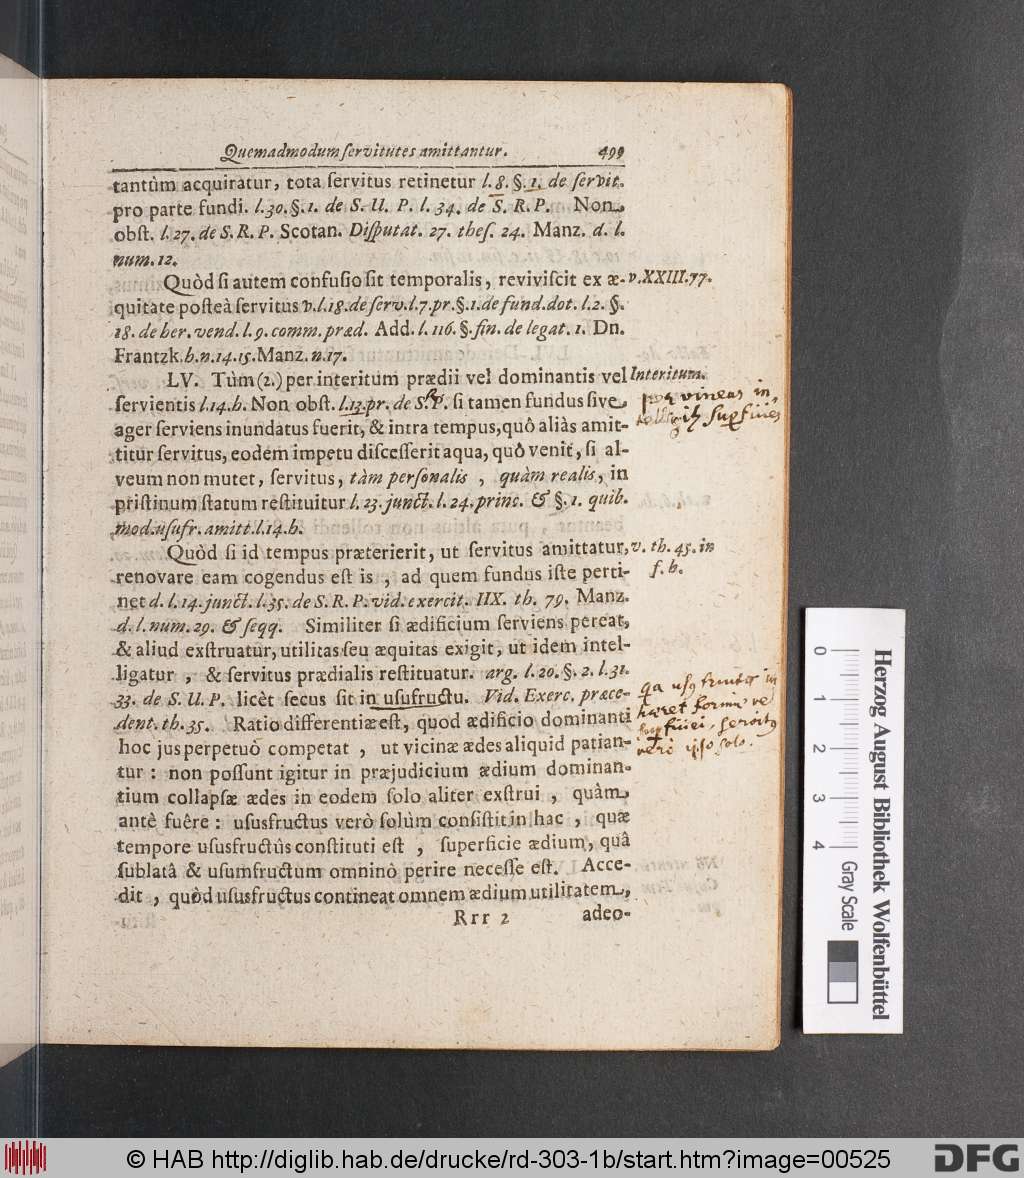 Quemadmodum servitutes amittantur. 499
tantùm acquiratur, tota servitus retinetur l. 8. §. 1. de servit.
pro parte fundi. l. 30. §. 1. de S. U. P. l. 34. de S. R. P. Non
obst. l. 27. de S. R. P. Scotan. Disputat. 27. thes. 24. Manz. d. l.
num. 12.
Quòd si autem confusio sit temporalis, reviviscit ex æ- v. XXIII. 77.
quitate posteà servitus v. l. 18. de serv. l. 7. pr. §. 1. de fund. dot. l. 2. §.
18. de her. vend. l. 9. comm. præd. Add. l. 116. §. fin. de legat. 1. Dn.
Frantzk. h. n. 14. 15. Manz. n. 17.
LV. Tùm (2.) per interitum prædii vel dominantis vel Interitum.
servientis l. 14. h. Non obst. l. 13. pr. de S. P. si tamen fundus sive
ager serviens inundatus fuerit, & intra tempus, quô aliàs amit-
titur servitus, eodem impetu discesserit aqua, quô venit, si al-
veum non mutet, servitus, tàm personalis, quàm realis, in
pristinum statum restituitur l. 23. junct. l. 24. princ. & §. 1. quib.
mod. usufr. amitt. l. 14. h.
Quòd si id tempus præterierit, ut servitus amittatur, v. th. 45. in
f. h.
renovare eam cogendus est is, ad quem fundus iste perti-
net d. l. 14. junct. l. 35. de S. R. P. vid. exercit. IIX. th. 79. Manz.
d. l. num. 29. & seqq. Similiter si ædificium serviens pereat,
& aliud exstruatur, utilitas seu æquitas exigit, ut idem intel-
ligatur, & servitus prædialis restituatur. arg. l. 20. §. 2. l. 31.
33. de S. U. P. licèt secus sit in usufructu. Vid. Exerc. præce-
dent. th. 35. Ratio differentiæ est, quod ædificio dominanti
hoc jus perpetuò competat, ut vicinæ ædes aliquid patian-
tur: non possunt igitur in præjudicium ædium dominan-
tium collapsæ ædes in eodem solo aliter exstrui, quàm
antè fuêre: ususfructus verò solùm consistit in hac, quæ
tempore ususfructûs constituti est, superficie ædium, quâ
sublatâ & usumfructum omninò perire necesse est. Acce-
dit, quòd ususfructus contineat omnem ædium utilitatem,
Rrr 2 adeo-
vineas in
superficies
formæ
superficiei, servitus
verò ipso solo.
0 1 2 3 4 Gray Scale
Herzog August Bibliothek Wolfenbüttel
© HAB http://diglib.hab.de/drucke/rd-303-1b/start.htm?image=00525
DFG